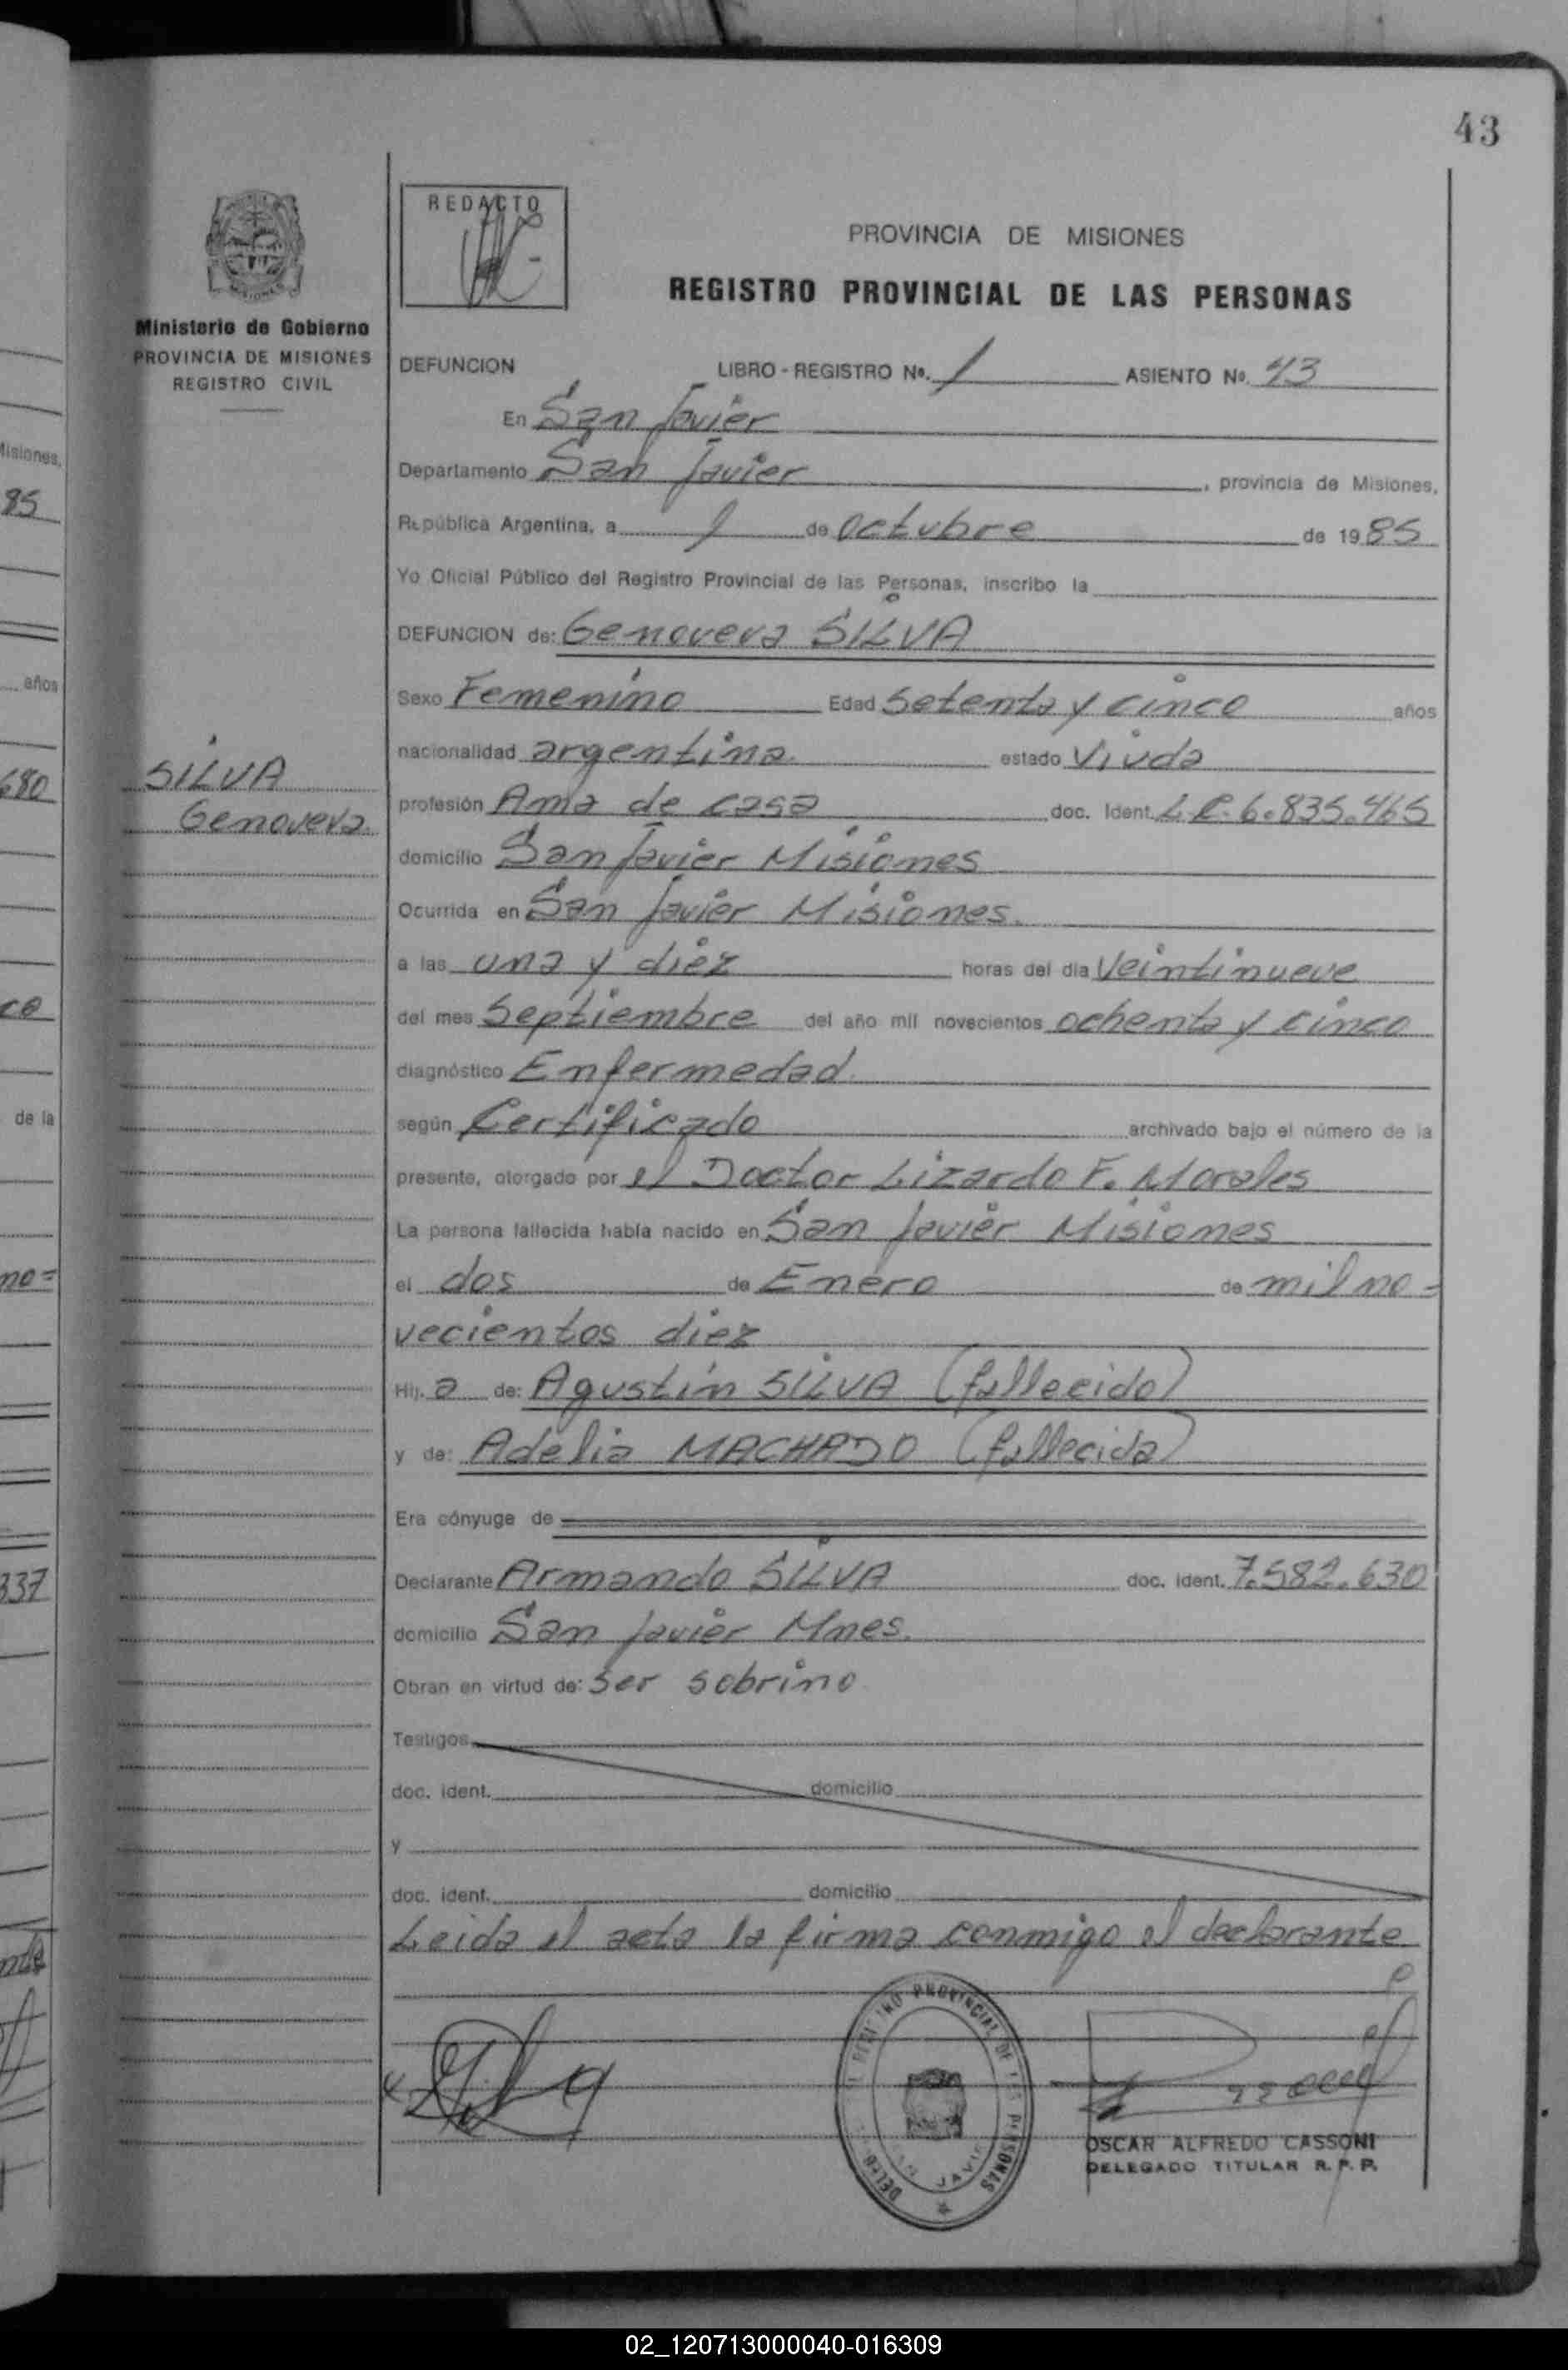 43
REDACTO
PROVINCIA DE MISIONES
REGISTRO PROVINCIAL DE LAS PERSONAS
MISIONES
Ministerio de Gobierno
PROVINCIA DE MISIONES
REGISTRO CIVIL
DEFUNCION LIBRO - REGISTRO Nº. 1 ASIENTO Nº. 43
En San Javier
Departamento San Javier, provincia de Misiones,
República Argentina, a 1 de octubre de 1985
Yo Oficial Público del Registro Provincial de las Personas, inscribo la
DEFUNCION de: Genoveva SILVA
Sexo Femenino Edad Setenta y cinco años
nacionalidad argentina estado Viuda
SILVA
Genoveva
profesión Ama de casa doc. Ident. L.C. 6.835.465
domicilio San Javier Misiones
Ocurrida en San Javier Misiones.
a las una y diez horas del día Veintinueve
del mes Septiembre del año mil novecientos ochenta y cinco
diagnóstico Enfermedad
según Certificado archivado bajo el número de la
presente, otorgado por el Doctor Lizardo F. Morales
La persona fallecida había nacido en San Javier Misiones
el dos de Enero de mil no=
vecientos diez
Hij. a de: Agustín SILVA (fallecido)
y de: Adelia MACHADO (fallecida)
Era cónyuge de
Declarante Armando SILVA doc. ident. 7.582.630
domicilio San Javier Mnes.
Obran en virtud de: Ser sobrino
Testigos
doc. ident. domicilio
y
doc. ident. domicilio
Leida el acta la firma conmigo el declarante
PROVINCIAL DE LAS PERSONAS
OSCAR ALFREDO CASSONI
DELEGADO TITULAR R. P. P.
Misiones,
85
años
680
ce
de la
no=
337
02_120713000040-016309